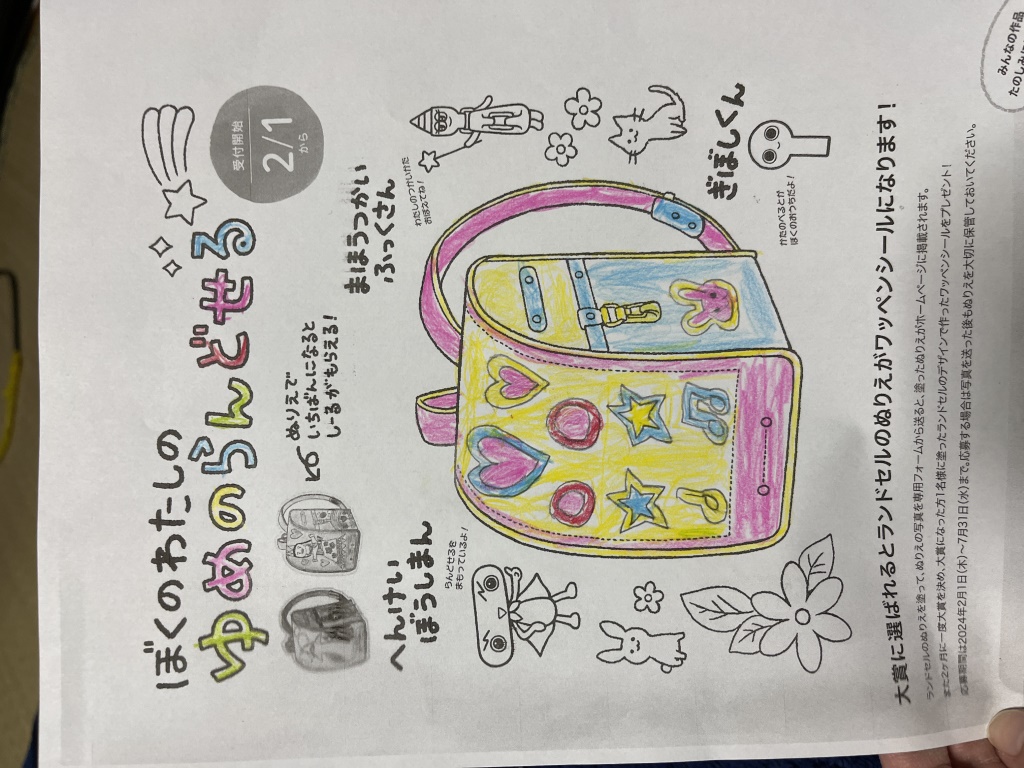 ぼくのわたしの
ゆめのらんどせる
受付開始
2/1
から
ぬりえで
いちばんになると
しーるがもらえる!
まほうつかい
ふっくさん
わたしのつかいかた
おぼえてね!
へんけい
ぼうしまん
らんどせるを
まもっているよ!
ぎぼしくん
かたのべるとが
ぼくのおうちだよ!
大賞に選ばれるとランドセルのぬりえがワッペンシールになります!
ランドセルのぬりえを塗って、ぬりえの写真を専用フォームから送ると、塗ったぬりえがホームページに掲載されます。
また2ヶ月に一度大賞を決め、大賞になった方1名様に塗ったランドセルのデザインで作ったワッペンシールをプレゼント!
応募期間は2024年2月1日(木)〜7月31日(水)まで。応募する場合は写真を送った後もぬりえを大切に保管しておいてください。
みんなの作品